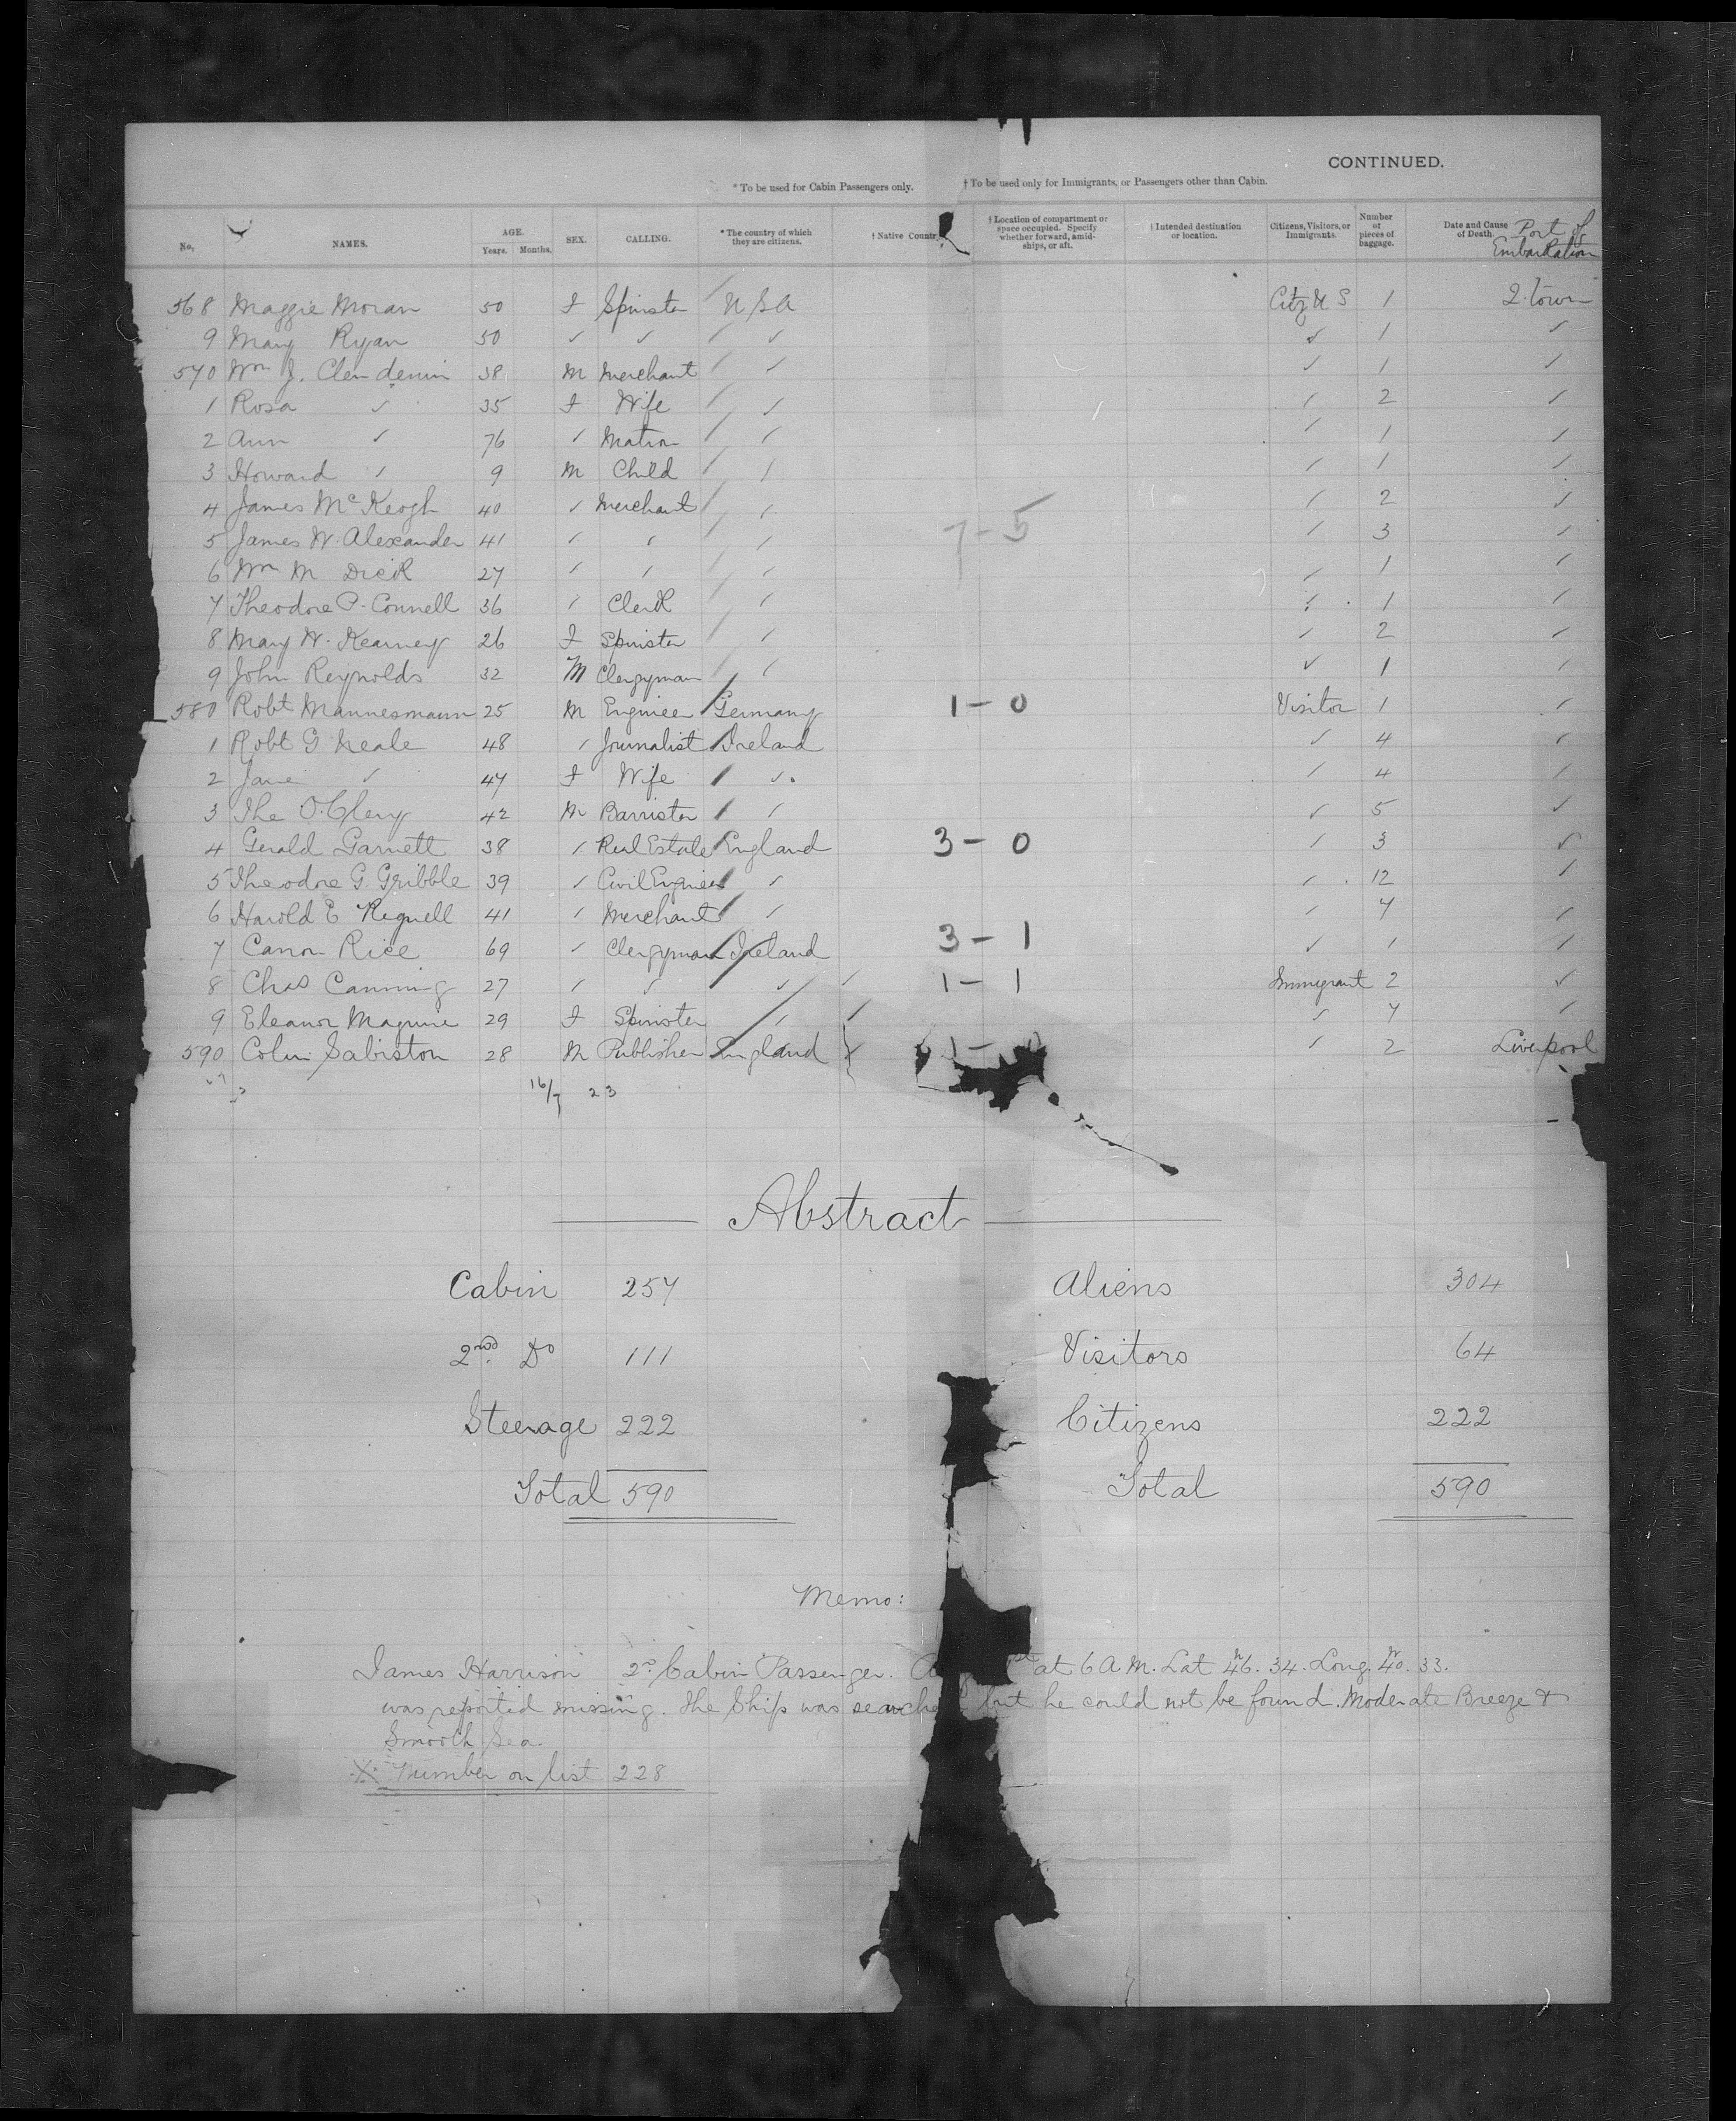 CONTINUED.
* To be used for Cabin Passengers only. † To be used only for Immigrants, or Passengers other than Cabin.
No. NAMES. AGE. Years. Months. SEX. CALLING. * The country of which they are citizens. † Native Country † Location of compartment or space occupied. Specify whether forward, amid-ships, or aft. † Intended destination or location. Citizens, Visitors, or Immigrants. Number of pieces of baggage. Date and Cause of Death. Port of Embarkation
568 Maggie Moran 50 F Spinster U S A Citz U S 1 Q. Town
9 Mary Ryan 50 ✓ ✓ ✓ ✓ 1 ✓
570 Wm J. Clendenin 38 M Merchant ✓ ✓ 1 ✓
1 Rosa ✓ 35 F Wife ✓ ✓ 2 ✓
2 Ann ✓ 76 ✓ Matron ✓ ✓ 1 ✓
3 Howard ✓ 9 M Child ✓ ✓ 1 ✓
4 James McKeogh 40 ✓ Merchant ✓ ✓ 2 ✓
5 James W. Alexander 41 ✓ ✓ ✓ 7-5 ✓ 3 ✓
6 Wm M Dick 27 ✓ ✓ ✓ ✓ 1 ✓
7 Theodore P. Connell 36 ✓ Clerk ✓ ✓ 1 ✓
8 Mary W. Kearney 26 F Spinster ✓ ✓ 2 ✓
9 John Reynolds 32 M Clergyman ✓ ✓ 1 ✓
580 Robt Mannesmann 25 M Engineer Germany 1-0 Visitor 1 ✓
1 Robt G Neale 48 ✓ Journalist Ireland ✓ 4 ✓
2 Jane ✓ 47 F Wife ✓ ✓ 4 ✓
3 The O.Clery 42 M Barrister ✓ ✓ 5 ✓
4 Gerald Garnett 38 ✓ Real Estate England 3-0 ✓ 3 ✓
5 Theodore G. Gribble 39 ✓ Civil Engineer ✓ ✓ 12 ✓
6 Harold E Regnell 41 ✓ Merchant ✓ ✓ 7 ✓
7 Canon Rice 69 ✓ Clergyman Ireland 3-1 ✓ 1 ✓
8 Chas Canning 27 ✓ ✓ ✓ ✓ 1-1 Immigrant 2 ✓
9 Eleanor Maguire 29 F Spinster ✓ ✓ ✓ 7 ✓
590 Colin Sabiston 28 M Publisher England 1- ✓ 2 Liverpool
16/7 23
Abstract
Cabin 257 Aliens 304
2nd Do 111 Visitors 64
Steerage 222 Citizens 222
Total 590 Total 590
Memo:
James Harrison 2nd Cabin Passenger. at 6 A.M. Lat N 46. 34. Long. W 40. 33.
was reported missing. The Ship was searched but he could not be found. Moderate Breeze &
Smooth Sea.
X Number on list 228